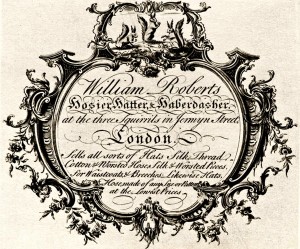 William Roberts
Hosier, Hatter, & Haberdasher,
at the three Squirrels in Jermyn Street,
London.
Sells all sorts of Hats Silk, Thread,
Cotton & Worsted Hose, Silk & Worsted Pieces,
for Waistcoats & Breeches, Likewise Hats,
Hose, made of any Size or
at the Lowest Prices